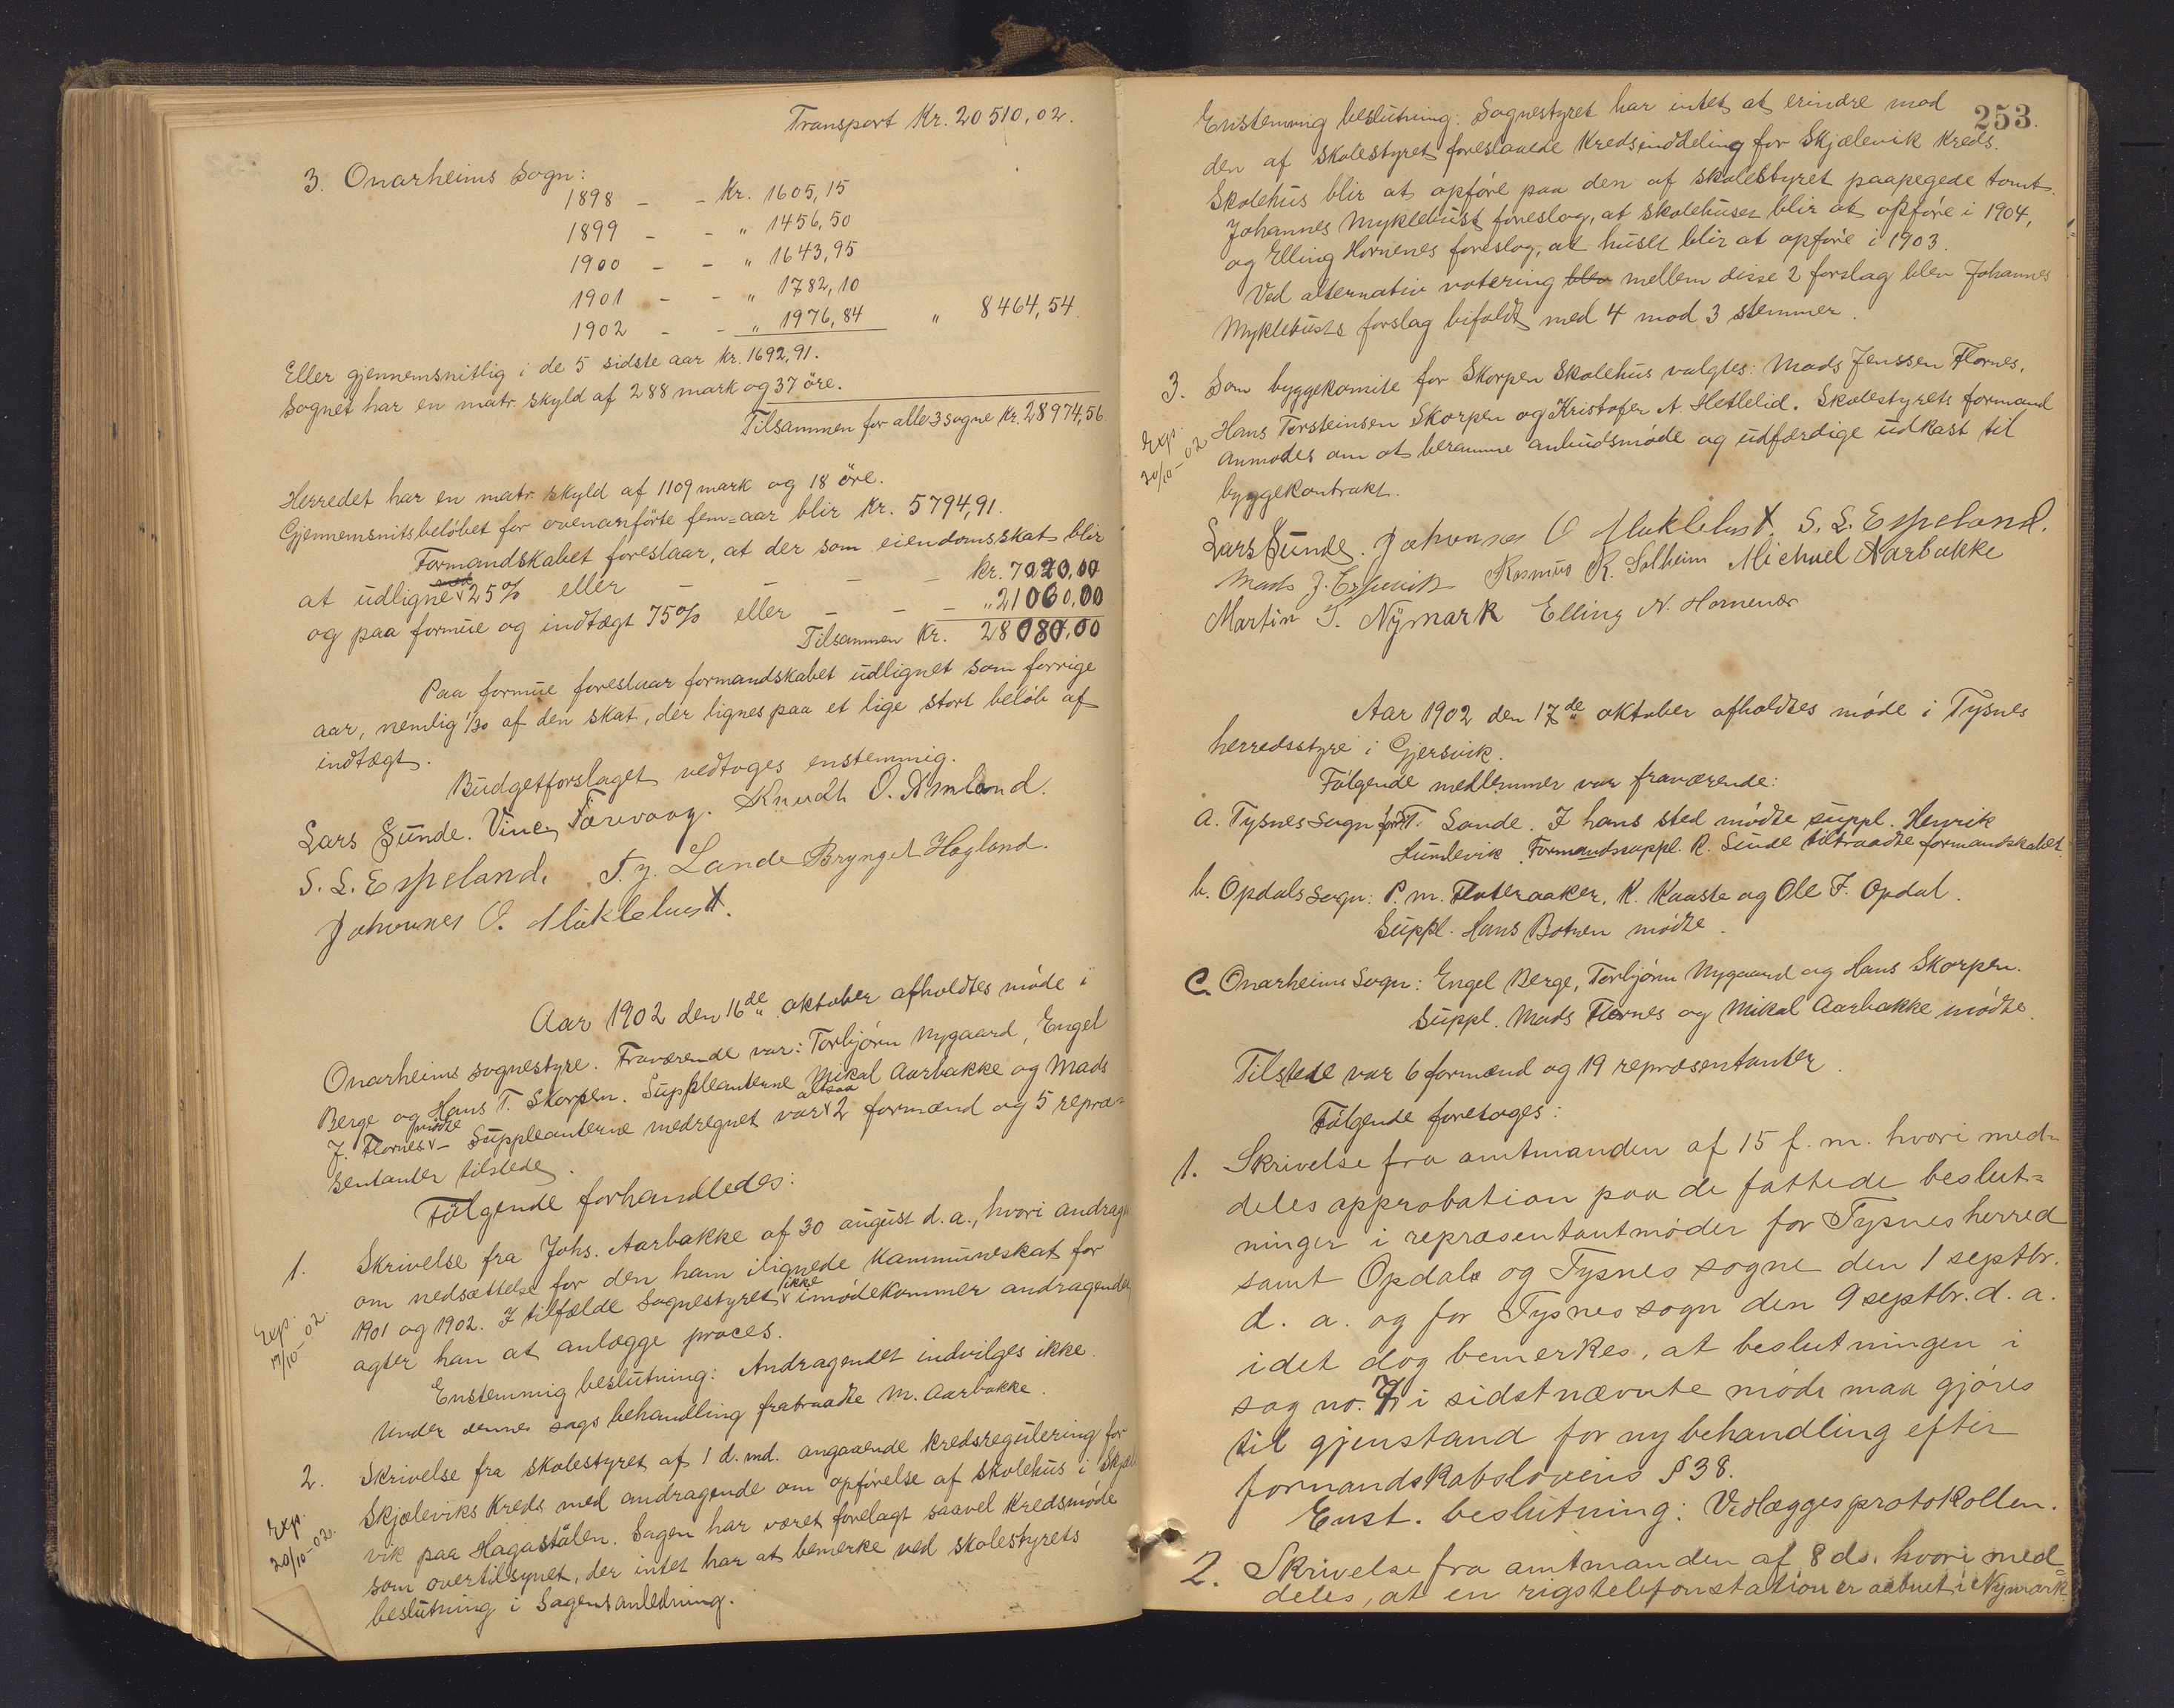 Transport Kr. 20510,02.
3. Onarheims sogn:
1898 - - Kr. 1605,15
1899 - - " 1456,50
1900 - - " 1643,95
1901 - - " 1782,10
1902 - - " 1976,84 " 8464,54.
Eller gjennemsnitlig i de 5 sidste aar kr. 1692,91.
Sognet har en matr. skyld af 288 mark og 37 öre.
Tilsammen for alle 3 sogne Kr. 28974,56
Herredet har en matr. skyld af 1109 mark og 18 öre.
Gjennemsnitsbeløbet for ovenanførte fem-aar blir Kr. 5794,91.
Formandskabet foreslaar, at der som eiendomsskat blir
at udligne 25% eller - - - - Kr. 7020,00
og paa formue og indtægt 75% eller - - - " 21060,00
Tilsammen Kr. 28080,00
Paa formue foreslaar formandskabet udlignet som forrige
aar, nemlig 1/30 af den skat, der lignes paa et lige stort beløb af
indtægt.
Budgetforslaget vedtoges enstemmig.
Lars Sunde. Vinc. Farevaag. Knudt O. Amland.
S. L. Espeland. T. J. Lande Brynget Hagland.
Johannes O. Müklebust.
Aar 1902 den 16de oktober afholdtes møde i
Onarheims sognestyre. Fraværende var: Torbjørn Nygaard, Engel
Berge og Hans T. Skorpen. Suppleanterne Mikal Aarbakke og Mads
J. Flornes mødte - Suppleanterne medregnet var altsaa 2 formænd og 5 repræ-
sentanter tilstede.
Følgende forhandledes:
1. Skrivelse fra Johs. Aarbakke af 30 august d. a., hvori andrages
om nedsættelse for den ham ilignede kommuneskat for
1901 og 1902. I tilfælde sognestyret ikke imødekommer andragendet,
Exp. 17/10-02.
agter han at anlægge proces.
Enstemmig beslutning: Andragendet indvilges ikke.
Under denne sags behandling fratraadte M. Aarbakke.
2. Skrivelse fra skolestyret af 1 d. md. angaaende kredsregulering for
Skjæleviks Kreds med andragende om opførelse af skolehus i Skjæle
Exp. 20/10-02.
vik paa Hagastølen. Sagen har været forelagt saavel kredsmøde
som overtilsynet, der intet har at bemerke ved skolestyrets
beslutning i sagens anledning.
253.
Enstemmig beslutning: Sognestyret har intet at erindre mod
den af skolestyret foreslaaede Kredsinddeling for Skjælevik Kreds.
Skolehus blir at opføre paa den af skolestyret paapegede tomt.
Johannes Myklebust foreslog, at skolehuset blir at opføre i 1904,
og Elling Hornenes foreslog, at huset blir at opføre i 1903.
Ved alternativ votering blev mellem disse 2 forslag blev Johannes
Myklebusts forslag bifaldt med 4 mod 3 stemmer.
3. Som byggekomite for Skorpen Skolehus valgtes: Mads Jenssen Flornes,
Hans Torsteinsen Skorpen og Kristofer A. Hetlelid. Skolestyrets formand
Exp. 20/10-02
anmodes om at beramme anbudsmøde og udfærdige udkast til
byggekontrakt.
Lars Sunde. Johannes O Müklebust. S. L. Espeland.
Mads J. Rasmus K. Solheim Michael Aarbakke
Martin T. Nÿmark Elling N. Hornenes
Aar 1902 den 17de oktober afholdtes møde i Tysnes
herredsstyre i Gjersvik.
Følgende medlemmer var fraværende:
a. Tysnes Sogn: T. Lande. I hans sted mødte suppl. Henrik
Humlevik. Formandsuppl. R. Sunde tiltraadte formandskabet.
b. Opdals sogn: P. M. Flateraaker, K. Kaaste og Ole F. Opdal.
Suppl. Hans Botnen mødte.
c. Onarheims Sogn: Engel Berge, Torbjørn Nygaard og Hans Skorpen.
Suppl. Mads Flornes og Mikal Aarbakke mødte.
Tilstede var 6 formænd og 19 repræsentanter.
Følgende foretoges:
1. Skrivelse fra amtmanden af 15 f. m. hvori med-
deles approbation paa de fattede beslut-
ninger i repræsentantmøder for Tysnes herred
samt Opdals og Tysnes sogne den 1 septbr.
d. a. og for Tysnes sogn den 9 septbr. d. a.
idet dog bemerkes, at beslutningen i
sag no. 7 i sidstnævnte møde maa gjøres
til gjenstand for ny behandling efter
formandskabslovens § 38.
Enst. beslutning: Vedlægges protokollen.
2. Skrivelse fra amtmanden af 8 ds. hvori med-
deles, at en rigstelefonstation er aabnet i Nymark.